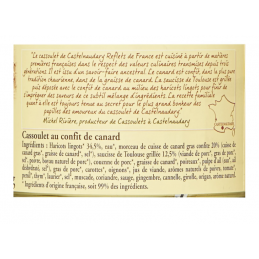 "Le cassoulet de Castelnaudary Reflets de France est cuisiné à partir de matières
premières françaises dans le respect des valeurs culinaires transmises depuis trois
générations. Il est issu d'un savoir-faire ancestral. Le canard est confit dans la plus pure
tradition, dans de la graisse de canard. La saucisse de Toulouse est grillée
puis déposée avec le confit de canard au milieu des haricots lingots pour finir
de s'imprégner de ce subtil mélange d'ingrédients. La recette familiale
quant à elle est toujours tenue au secret pour le plus grand bonheur des
papilles des amoureux du cassoulet de Castelnaudary"
Michel Rivière, producteur de Cassoulets à Castelnaudary
Cassoulet au confit de canard
Ingrédients : Haricots lingots* 34,5%, eau, morceau de cuisse de canard gras confite 20% (cuisse de
canard gras*, graisse de canard*, sel*), saucisse de Toulouse grillée 12,5% (viande de porc*, gras de porc*,
sel, poivre, boyau naturel de porc*), couenne de porc*, graisse de canard*,
sel*, ail*, gras de porc*, carottes*, oignons*, jus de volaille, arôme naturel, poivre,
thym*, laurier*, sel*, muscade, coriandre, sauge, gingembre, cannelle, girofle,
*Ingrédients d'origine française, soit 99% des ingrédients.